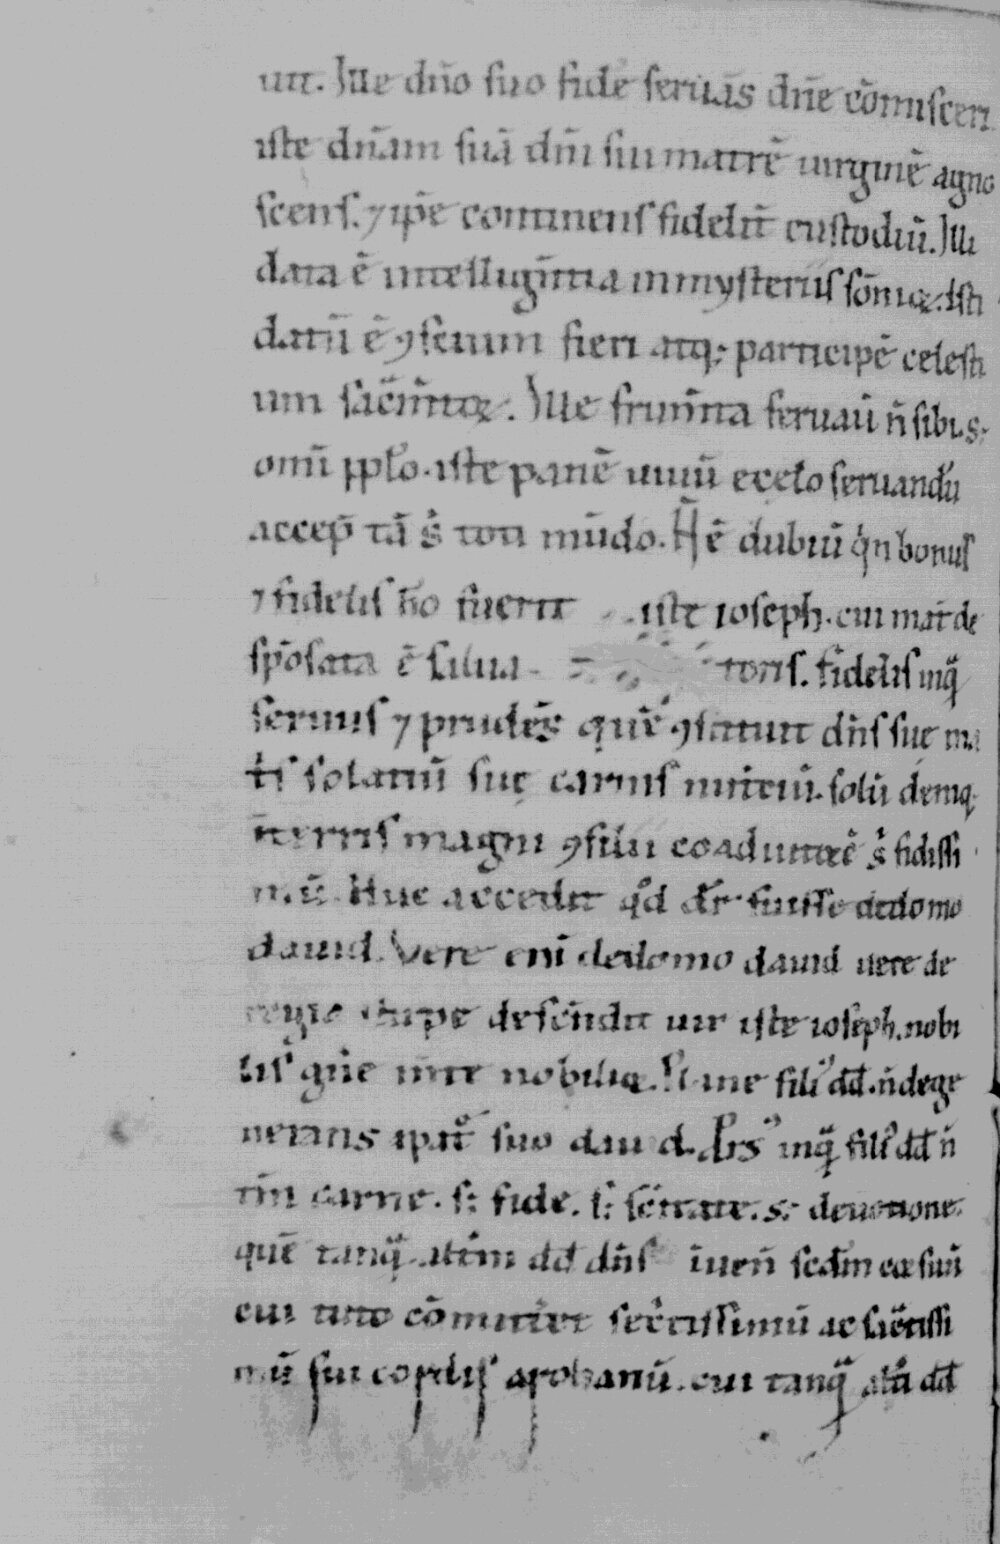 uit. Ille dño suo fidē seruãs dñe cõmisceri
iste dñam suã dñi sui matrē uirginē agno
scens. ⁊ ipē continens fidelit̃ custodiũ. Illi
data ē intelligẽtia in mysteriis sõnioꝝ. Isti
datũ ē ꝯscium fieri atq; participē celesti
um sac̃mtoꝝ. Ille frum̃ta seruaũ ñ sibi. s;
omĩ pplo. iste panē uiuũ e celo seruandũ
accep̃ tã s̃ toti mũdo. Ñ ē dubiũ qⁱn bonus
⁊ fidelis hõ fuerit iste ioseph. cui mat̃ de
spõsata ē salua toris. fidelis inqͣ̃
seruus ⁊ prudẽs quē ꝯstituit dñs suę ma
tⁱs solatiũ suę carnis nut̃ciũ. solũ deniq;
ĩ terris magni ꝯsilii coadiutorē s̃ fidissi
mũ. Huc accedit qd̃ dr̃ fuisse de domo
dauid. Vere eni de domo dauid uere de
regia stirpe desc̃ndit uir iste ioseph. nobi
lis gñe m̃te nobilioꝝ. Plane fili᷒ dd̃. ñ dege
nerans a pat̃ suo dauid. Prs᷒ inqͣ̃ fili᷒ dd̃ ñ
tm̃ carne. s; fide. s; sc̃itate. s; deuotione.
quē tanqͣ̃ alt̃m dd̃ dñs ĩueñ scdm cor suũ
cui tuto cõmitt̃et sec̃tissimũ ac sac̃tissi
mũ sui cordis archanũ. cui tanqͣ̃ alt̃i dd̃